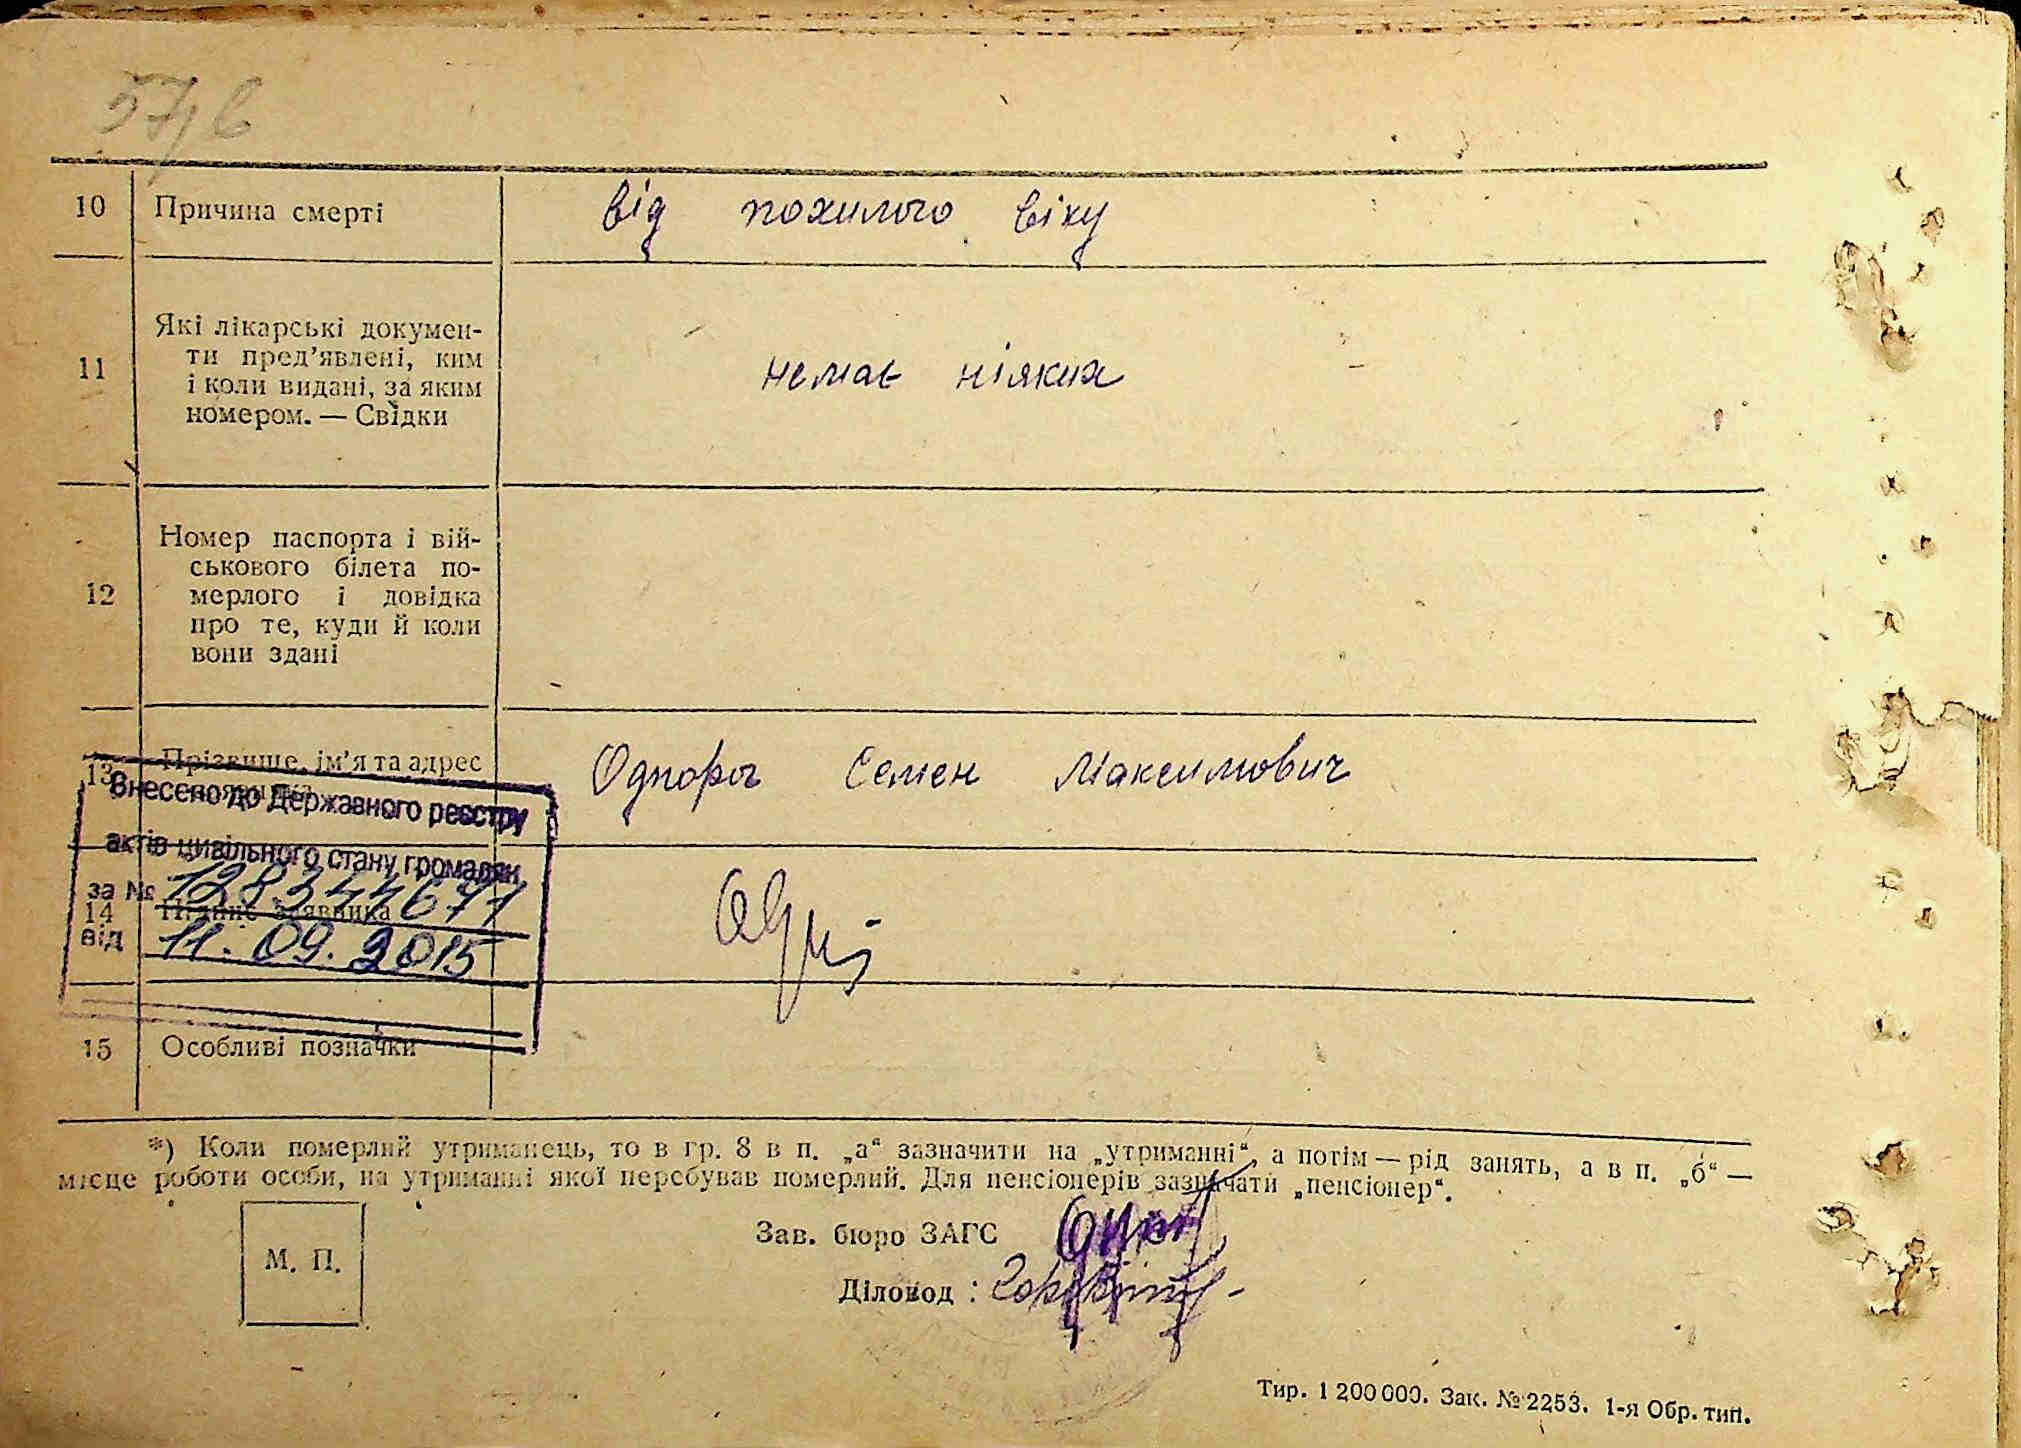 57,6
10 Причина смерті від похилого віку
11 Які лікарські докумен-
ти пред'явлені, ким
і коли видані, за яким
номером. — Свідки
немає ніяких
12 Номер паспорта і вій-
ськового білета по-
мерлого і довідка
про те, куди й коли
вони здані
13 Прізвище, ім'я та адрес
Семен Максимович
Внесено до Державного реєстру
актів цивільного стану громадян
за № 128344671
14 Підпис заявника
від 11.09.2015
15 Особливі позначки
*) Коли померлий утриманець, то в гр. 8 в п. „а“ зазначити на „утриманні“, а потім — рід занять, а в п. „б“ —
місце роботи особи, на утриманні якої перебував померлий. Для пенсіонерів зазначати „пенсіонер“.
М. П.
Зав. бюро ЗАГС
Діловод :
Тир. 1 200 000. Зак. № 2253. 1-я Обр. тип.